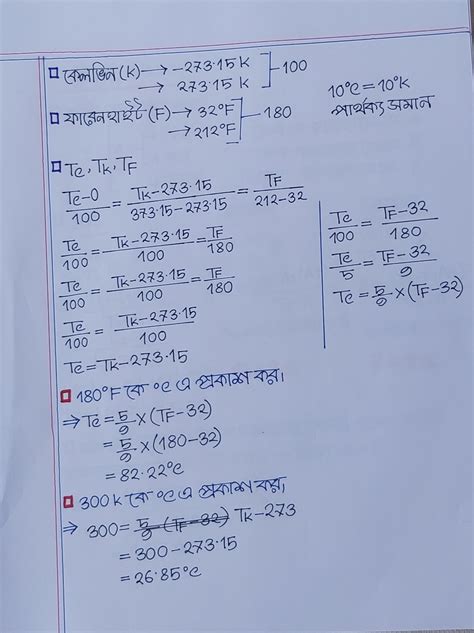 কেলভিন (K) → -273.15 K
→ 273.15 K
100
ফারেনহাইট (F) → 32°F
→ 212°F
180
10°C = 10°K
পার্থক্য সমান
Tc, Tk, TF
Tc-0/100 = Tk-273.15/373.15-273.15 = TF/212-32
Tc/100 = Tk-273.15/100 = TF/180
Tc/100 = Tk-273.15/100 = TF/180
Tc/100 = Tk-273.15/100
Tc = Tk-273.15
Tc/100 = TF-32/180
Tc/5 = TF-32/9
Tc = 5/9 × (TF-32)
180°F কে °C এ প্রকাশ কর।
⇒ Tc = 5/9 × (TF-32)
= 5/9 × (180-32)
= 82.22°C
300 K কে °C এ প্রকাশ কর,
⇒ 300 = 5/9 (TF-32) Tk-273
= 300-273.15
= 26.85°C